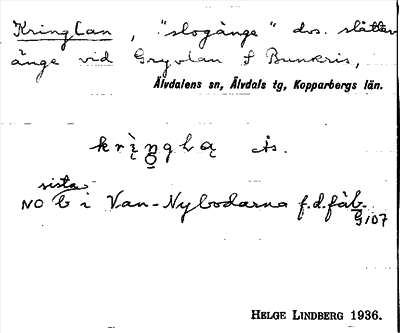 Kringlan, "slogänge" dvs. slåtter
änge vid Gryvlan S Bunkris,
Älvdalens sn, Älvdals tg, Kopparbergs län.
krìŋgla is.
sista
NO b i Van-Nybodarna f.d. fäb.
G107
HELGE LINDBERG 1936.